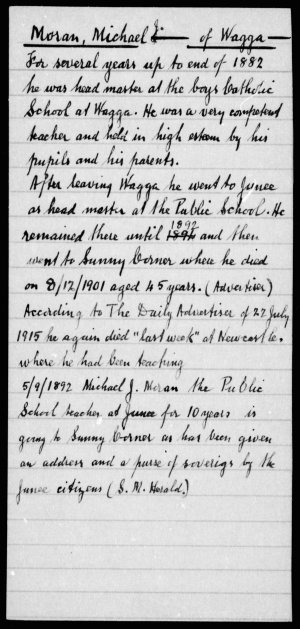 Moran, Michael J. — of Wagga —
For several years up to end of 1882
he was head master at the boys Catholic
School at Wagga. He was a very competent
teacher and held in high esteem by his
pupils and his parents.
After leaving Wagga he went to Junee
as head master at the Public School. He
remained there until 1892 and then
went to Sunny Corner where he died
on 8/12/1901 aged 45 years. (Advertiser)
According to The Daily Advertiser of 27 July
1915 he again died "last week" at Newcastle,
where he had been teaching
5/9/1892 Michael J. Moran the Public
School teacher at Junee for 10 years is
going to Sunny Corner as has been given
an address and a purse of soverigs by the
Junee citizens (S. M. Herald.)